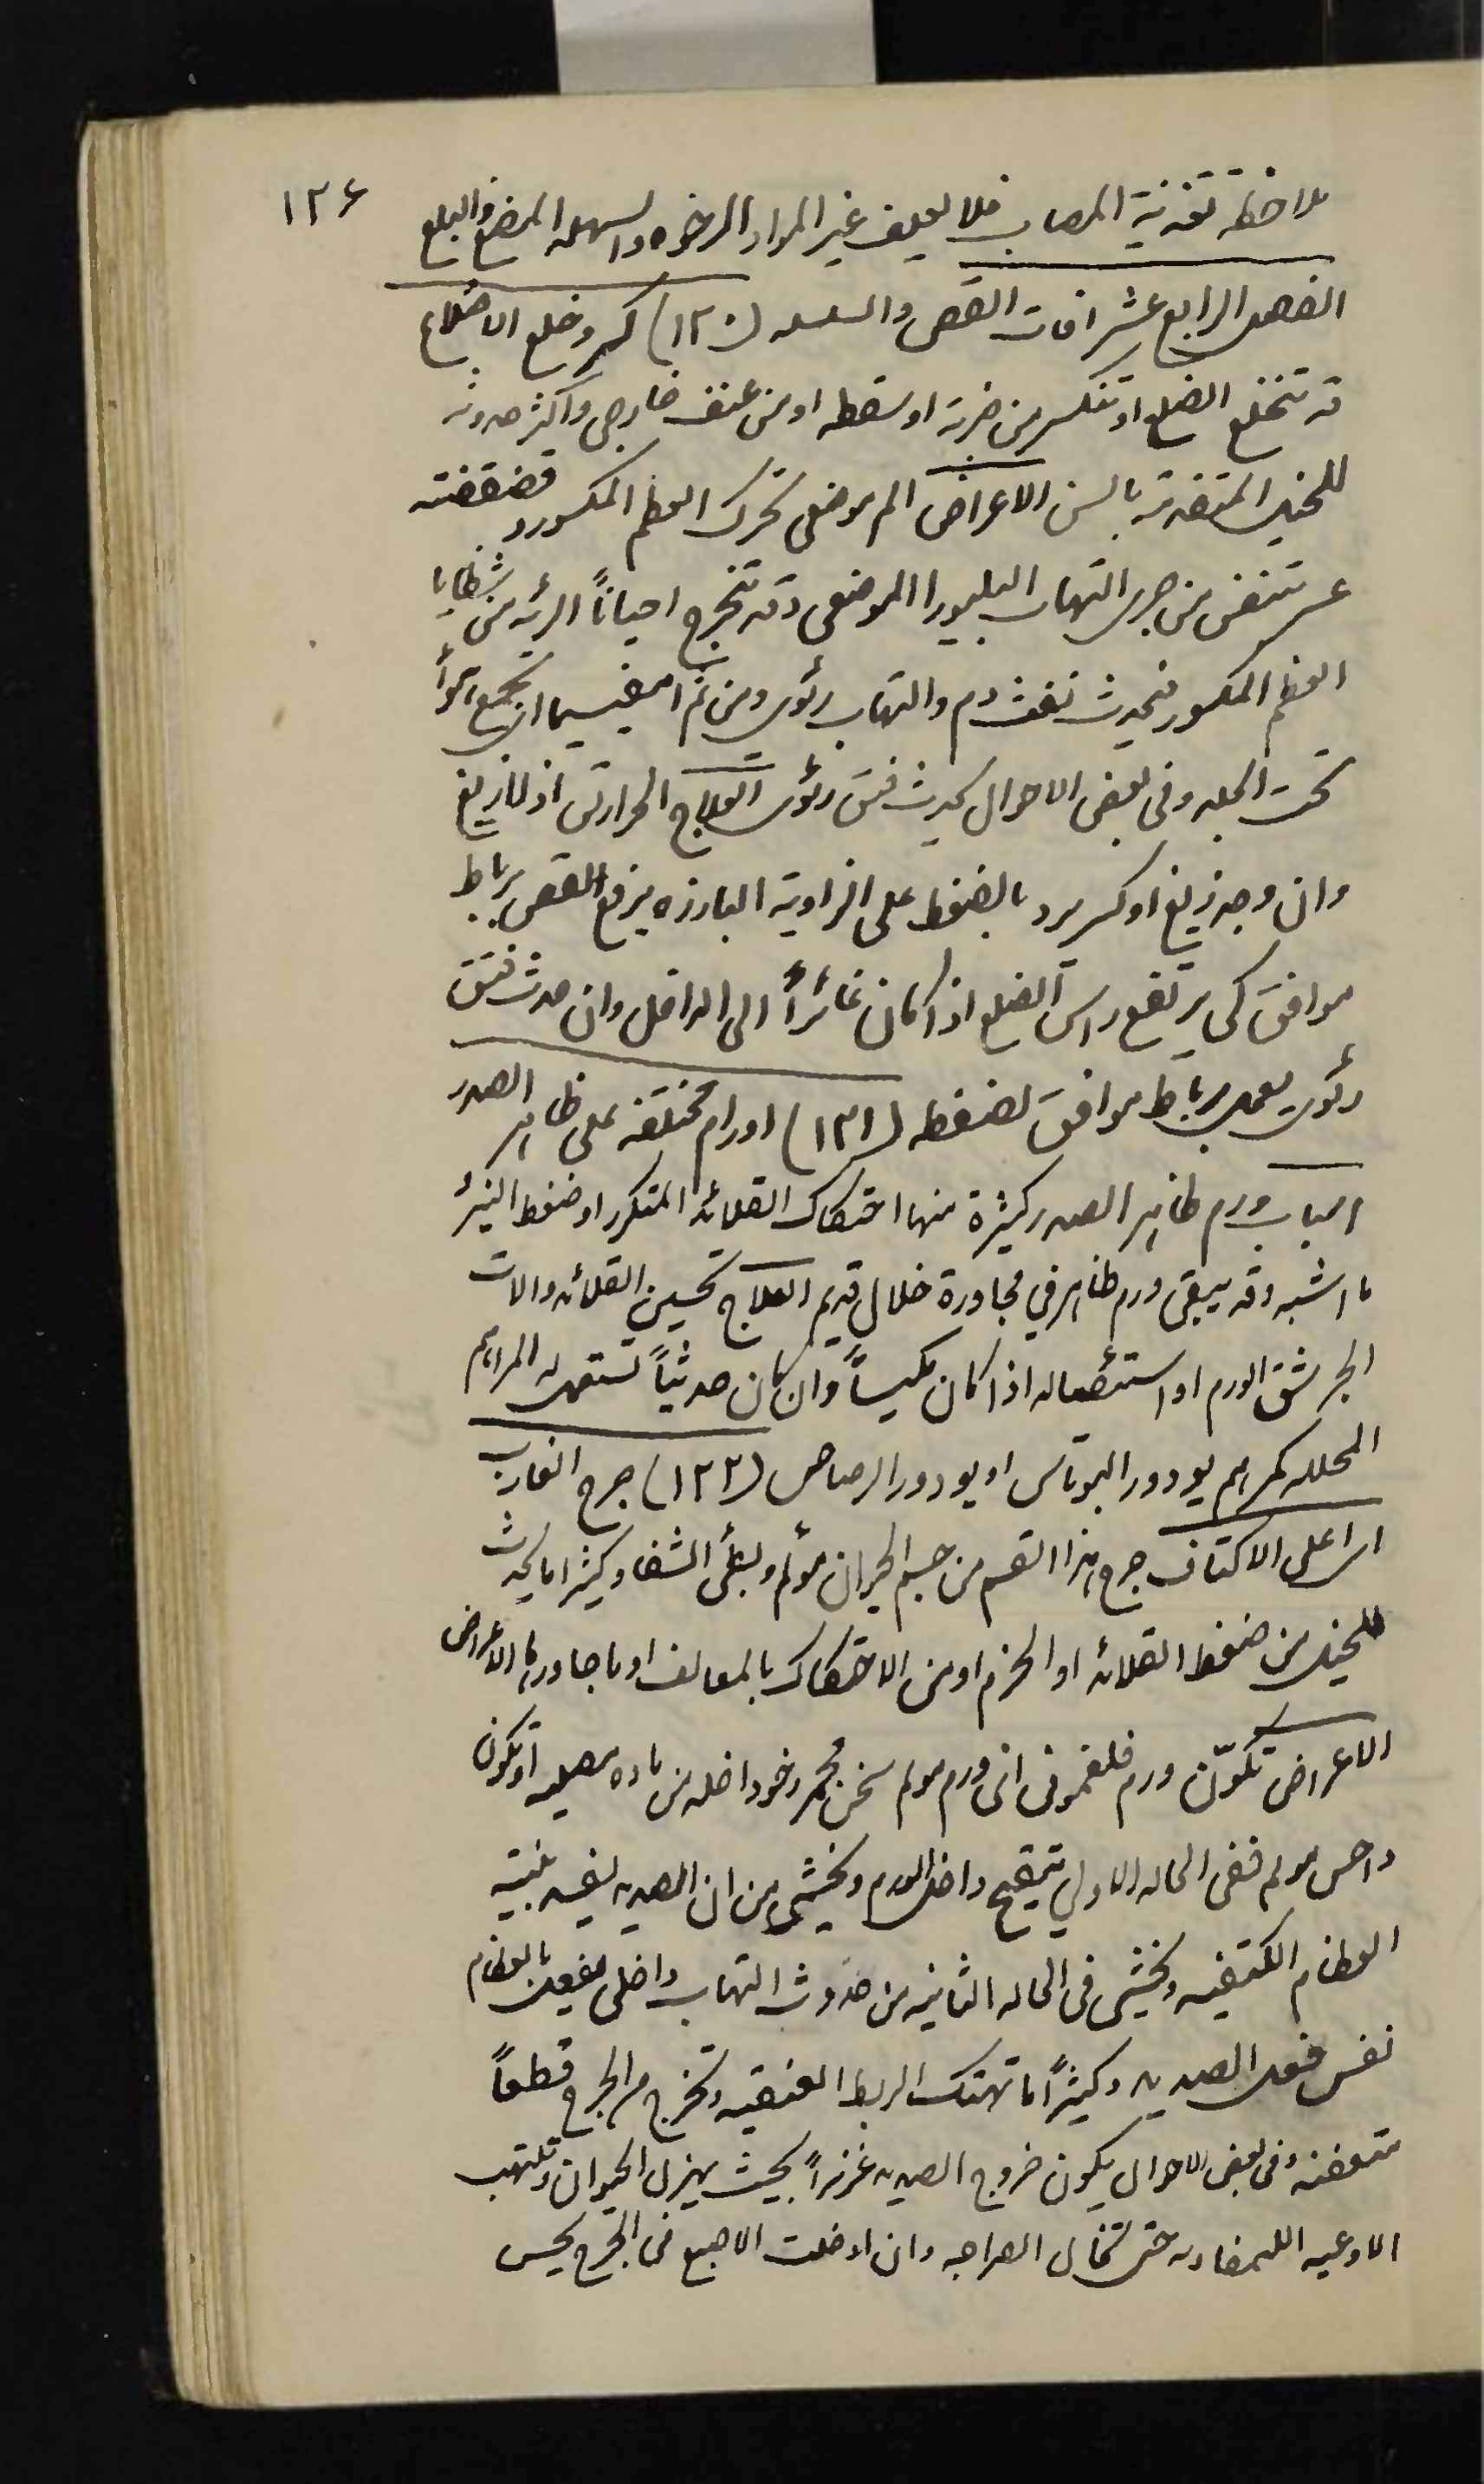 ١٢٤
ملاحظة تغذية المصاب فلا يعلف غير المواد الرخوه والسهله المضغ والبلع
الفصل الرابع عشر افات القص والسلسله (١٣٠) كسر وخلع الاضلاع
قد تنخلع الضلع او تنكسر من ضربة او سقطه او من عنف خارجى واكثر حدوثه
للخيل المتقدمة بالسن الاعراض الم موضعى تحرك العظم المكسور وقضقضته
عسر تنفس من جرى التهاب البليورا الموضعى وقد تنجرح احياناً الرئه من شظايا
العظم المكسور فيحدث نفث دم والتهاب رئوى ومن ثم امفيسيما اى تجمع هوأ
تحت الجلد وفى بعض الاحوال يحدث فتق رئوى العلاج الحراريق اذ لا زيغ
وان وجد زيغ او كسر يرد بالضغط على الزاوية البارزه برفع القص برباط
موافق كى يرتفع راس الضلع اذا كان غائراً الى الداخل وان حدث فتق
رئوى يعمل رباط موافق لضغطه (١٣١) اورام مختلفه على ظاهر الصدر
اسباب ورم ظاهر الصدر كثيرة منها احتكاك القلائد المتكرر او ضغط النير
ما اشبه وقد يبقى ورم ظاهر في مجاورة خلال قديم العلاج تحسين القلائد والات
الجر شق الورم او استئصاله اذا كان مكيساً وان كان حديثاً تستعمل له المراهم
المحلله كمرهم يودور البوتاس او يودور الرصاص (١٣٢) جرح الغارب
او اعلى الاكتاف جرح هذا القسم من جسم الحيوان مؤلم وبطئ الشفا وكثيرا ما يحدث
للخيل من ضغط القلائد او الحزم او من الاحتكاك بالمعالف او ما جاورها الاعراض
الاعراض تكوّن ورم فلغمونى اى ورم مولم سخن محمر رخو داخله من ماده مصليه او تكون
داحس مولم ففى الحاله الاولى يتقيح داخل الورم ويخشى من ان الصديد يفسد بنية
العظام الكتفيه ويخشى فى الحاله الثانيه من حدوث التهاب داخلى يفعل بالعظام
نفس فعل الصديد وكثيراً ما تهتك الربط العنقيه وتخرج من الجرح قطعاً
متعفنه وفى بعض الاحوال يكون خروج الصديد غزيراً بحيث يهزل الحيوان وتلتهب
الاوعيه اللمفاويه حتى تخال السراجه وان ادخلت الاصبع فى الجرح يحس